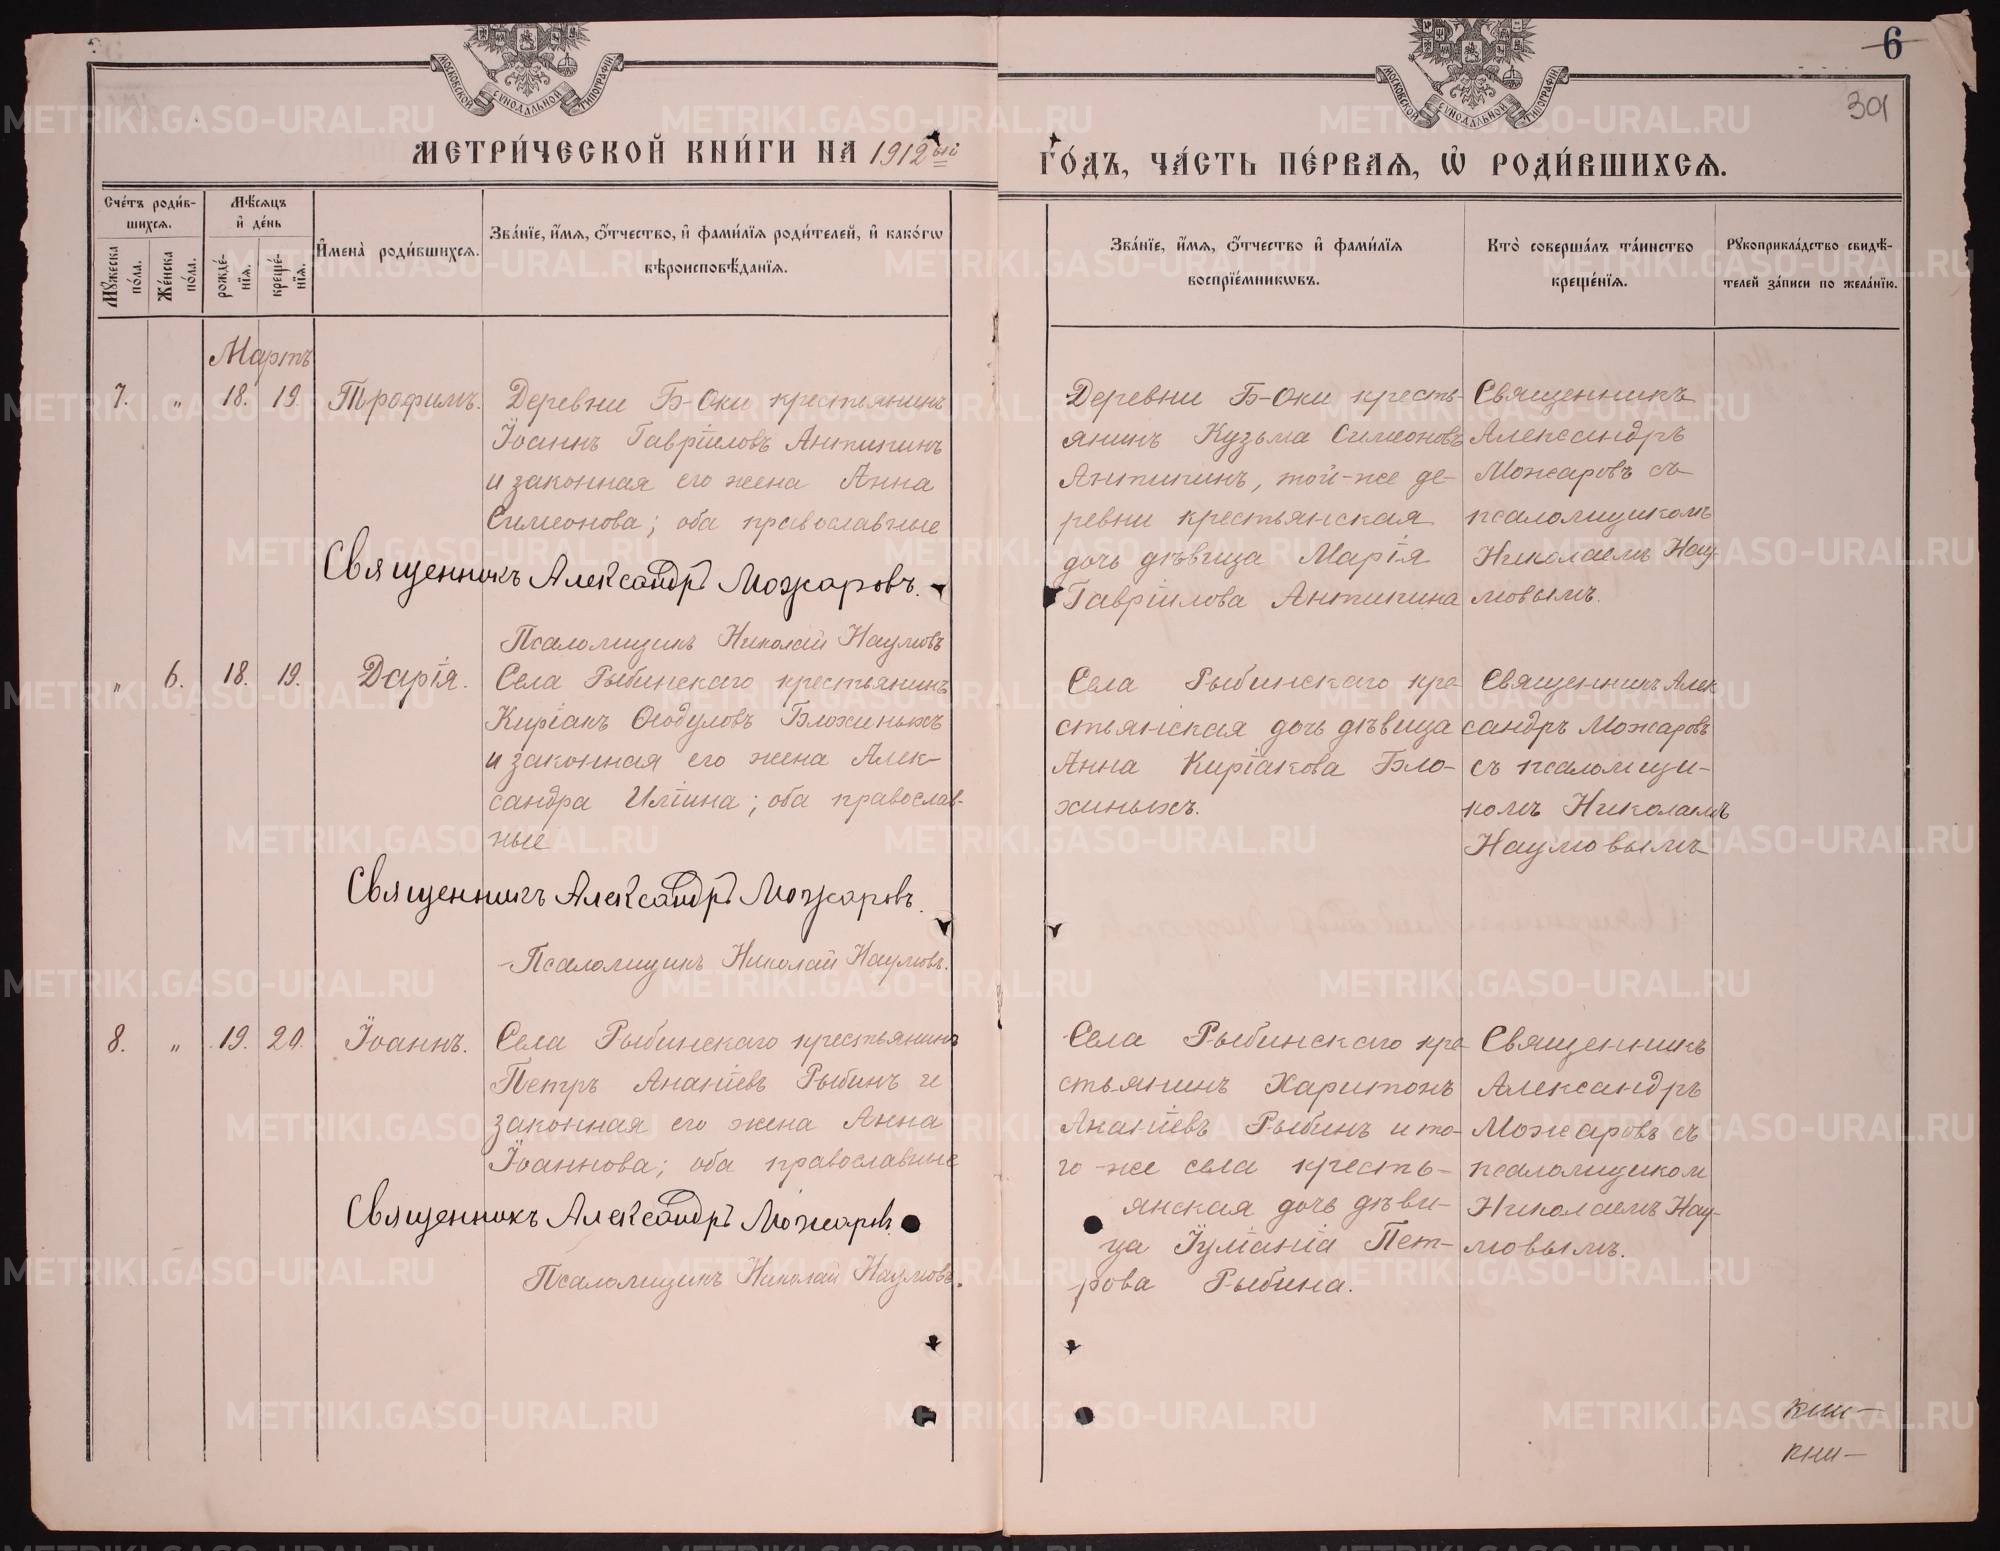 6
301
МОСКОВСКОЙ СѴНОДАЛЬНОЙ ТИПОГРАФІИ
МОСКОВСКОЙ СѴНОДАЛЬНОЙ ТИПОГРАФІИ
МЕТРИ́ЧЕСКОЙ КНИ́ГИ НА 1912ый
ГО́ДЪ, ЧА́СТЬ ПЕ́РВАЯ, Ѡ҆ РОДИ́ВШИХСЯ.
Сче́тъ роди́в-
шихся.
Мѣ́сяцъ
и҆ де́нь
Му́жеска по́ла.
Же́нска по́ла.
рожде́-
нїя.
креще́-
нїя.
И҆мена̀ роди́вшихся.
Зва́нїе, и҆́мя, ѻ҆́тчество, и҆ фами́лїя роди́телей, и҆ како́гѡ
вѣроисповѣ́данїя.
Зва́нїе, и҆́мя, ѻ҆́тчество и҆ фами́лїя
воспрїе́мникѡвъ.
Кто̀ соверша́лъ та́инство
креще́нїя.
Рꙋкоприкла́дство свидѣ́-
телей за́писи по жела́нїю.
Мартъ
7. „ 18. 19. Трофимъ.
Деревни Б-Оки крестьянинъ
Іоаннъ Гавріиловъ Антипинъ
и законная его жена Анна
Симеонова; оба православные
Священникъ Александръ Можаровъ.
Псаломщикъ Николай Наумовъ
Деревни Б-Оки кресть-
янинъ Кузьма Симеоновъ
Антипинъ, той-же де-
ревни крестьянская
дочь дѣвица Марія
Гавріилова Антипина
Священникъ
Александръ
Можаровъ съ
псаломщикомъ
Николаемъ Нау-
мовымъ.
„ 6. 18. 19. Дарія.
Села Рыбинскаго крестьянинъ
Киріакъ Ѳеодуловъ Блохиныхъ
и законная его жена Алек-
сандра Иліина; оба православ-
ные
Священникъ Александръ Можаровъ.
Псаломщикъ Николай Наумовъ.
Села Рыбинскаго кре-
стьянская дочь дѣвица
Анна Киріакова Бло-
хиныхъ.
Священникъ Алек
сандръ Можаровъ
съ псаломщи-
комъ Николаемъ
Наумовымъ
8. „ 19. 20. Іоаннъ.
Села Рыбинскаго крестьянинъ
Петръ Ананіевъ Рыбинъ и
законная его жена Анна
Іоаннова; оба православные
Священникъ Александръ Можаровъ.
Псаломщикъ Николай Наумовъ.
Села Рыбинскаго кре-
стьянинъ Харитонъ
Ананіевъ Рыбинъ и то-
го-же села кресть-
янская дочь дѣви-
ца Іуліанія Пет-
рова Рыбина.
Священникъ
Александръ
Можаровъ съ
псаломщиком
Николаемъ Нау-
мовымъ.
кни-
кни-
METRIKI.GASO-URAL.RU